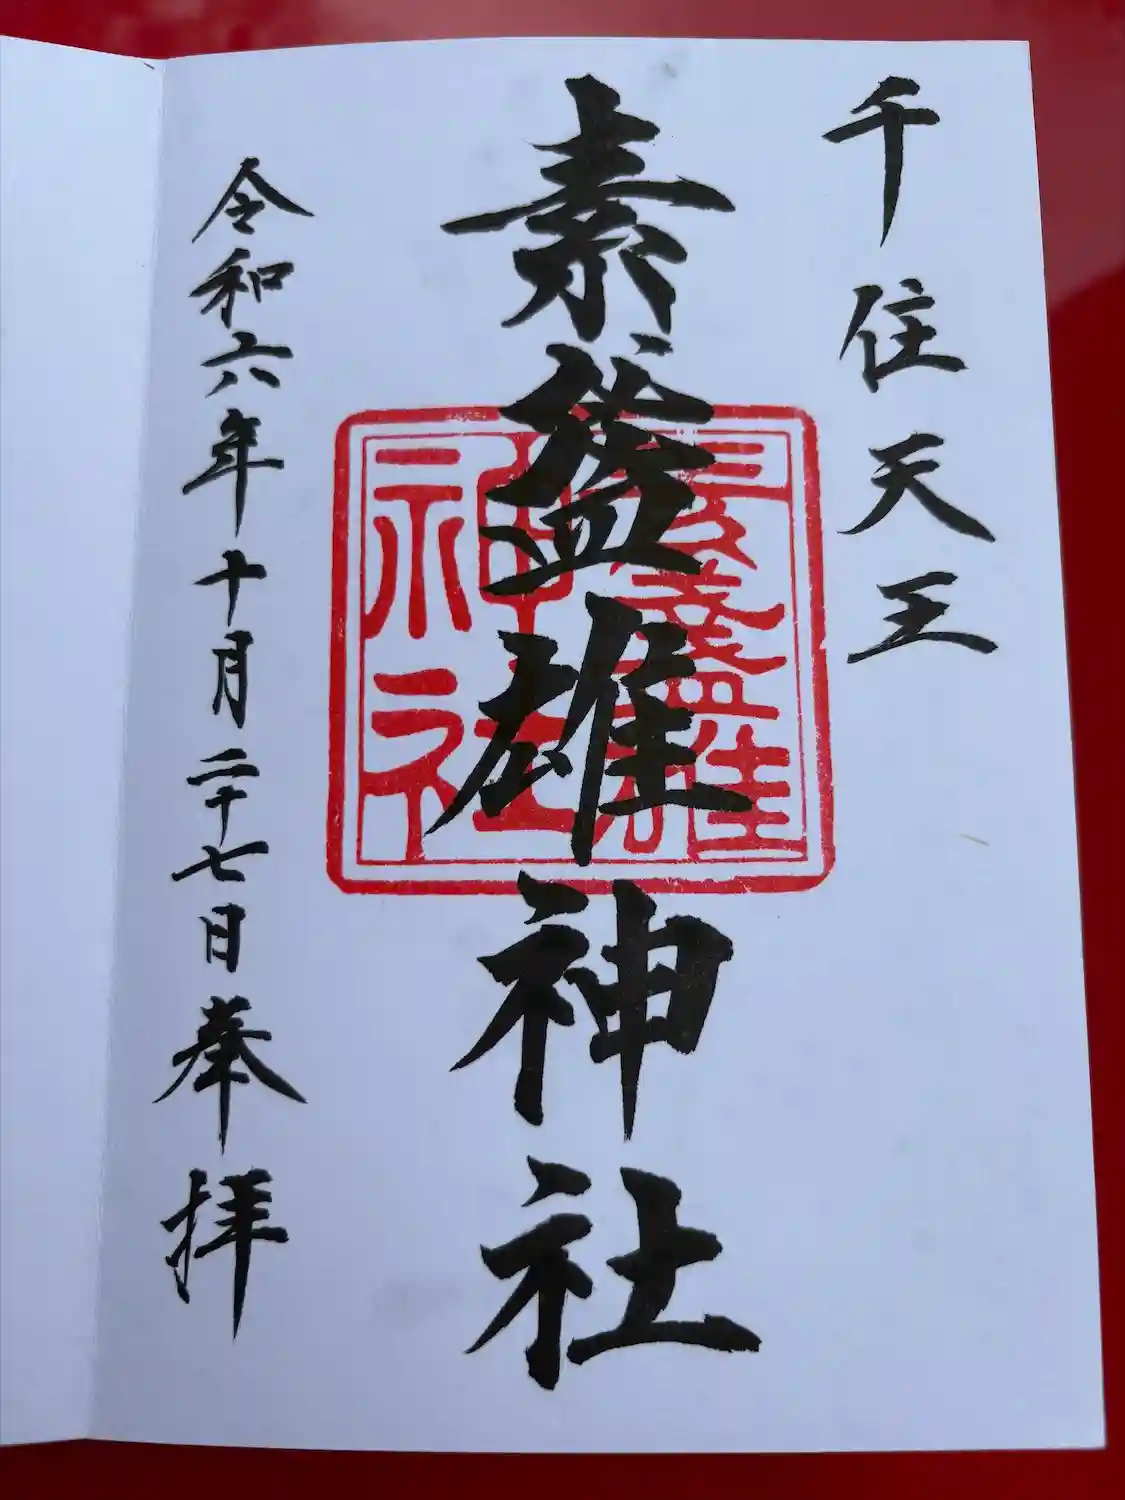 千住天王
素盞雄神社
素盞雄
神社
令和六年十月二十七日奉拝